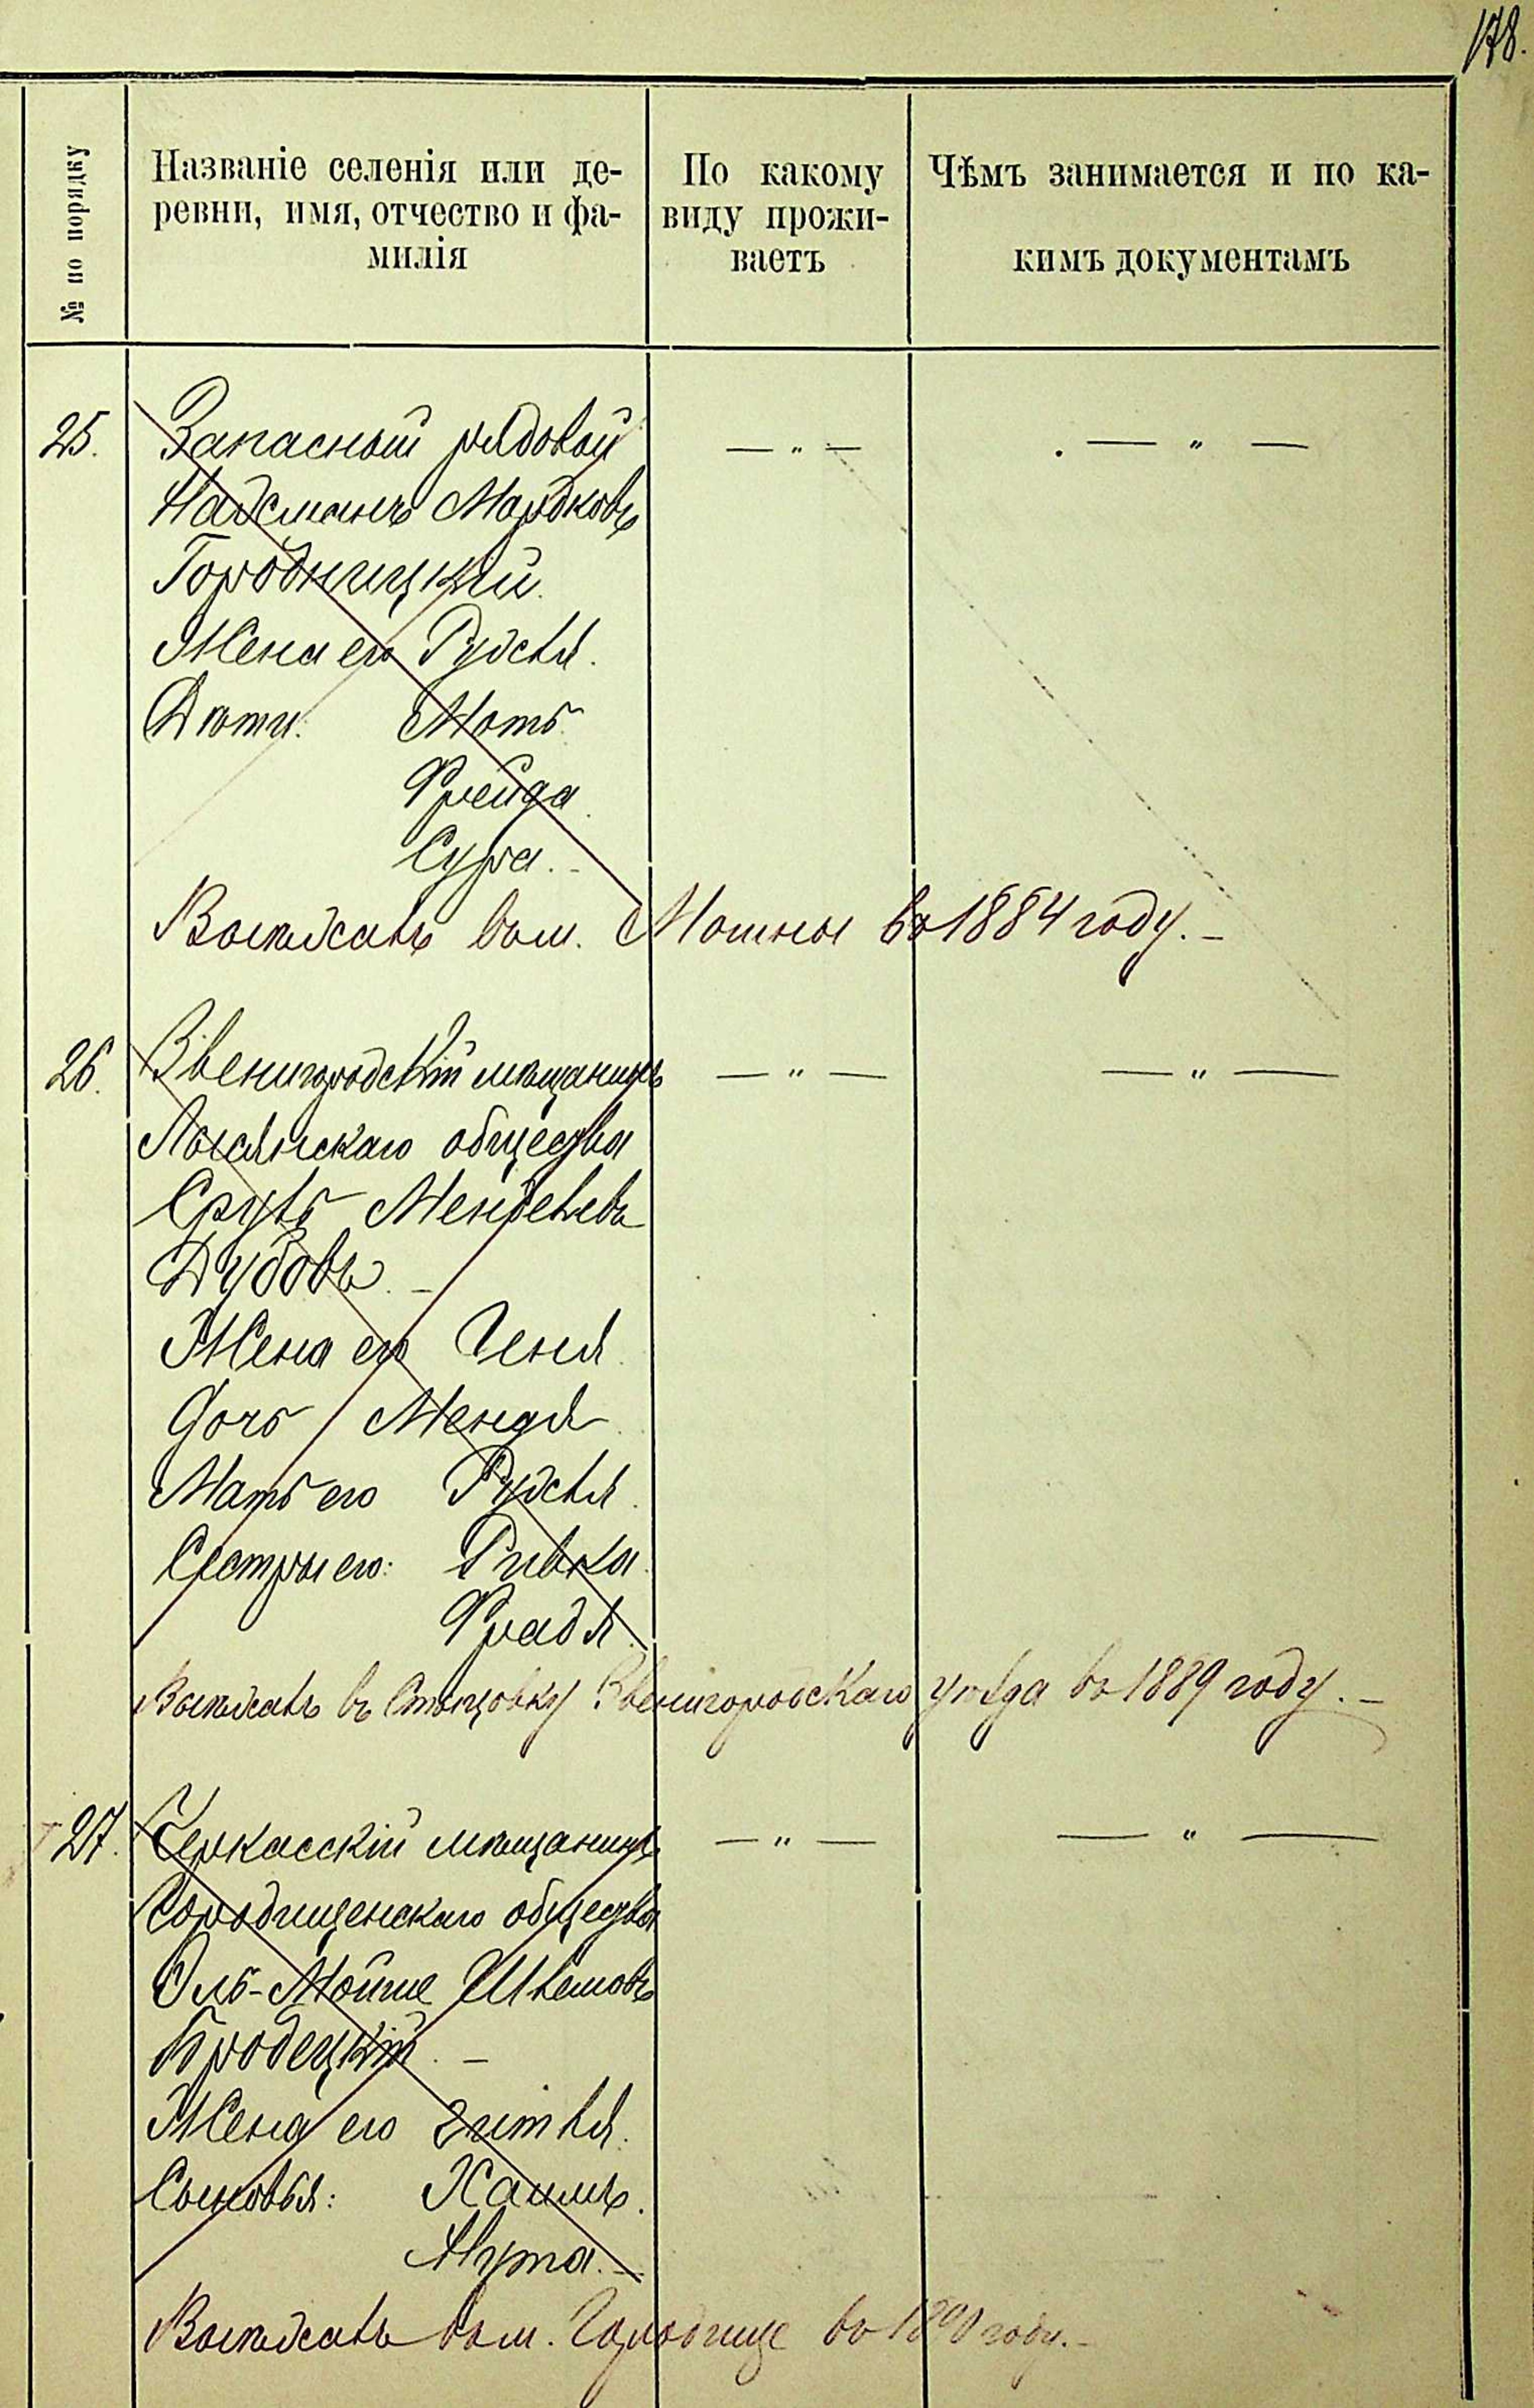 178.
№ по порядку
Названіе селенія или де-
ревни, имя, отчество и фа-
милія
По какому
виду прожи-
ваетъ
Чѣмъ занимается и по ка-
кимъ документамъ
25. Запасный рядовой — „ — — „ —
Нахманъ Мордковъ
Городницкій.
Жена его Рухля.
Дѣти: Моть
Фрейда
Сура. -
Выѣхалъ въ м. Мошны въ 1884 году. -
26. Звенигородскій мѣщанинъ — „ — — „ —
Лысянскаго общества
Сруль Менделевъ
Дубовъ. -
Жена его Геня
Дочь Мендя
Мать его Рухля.
Сестры его: Ривка
Фрадя.
Выѣхалъ въ Звенигородскаго уѣзда въ 1889 году. -
27. Черкасскій мѣщанинъ — „ — — „ —
Городищенскаго общества
Эль-Мойше Шлемовъ
Бродецкій. -
Жена его Гитля.
Сыновья: Хаимъ.
Нута. -
Выѣхалъ въ м. Городище въ году. -